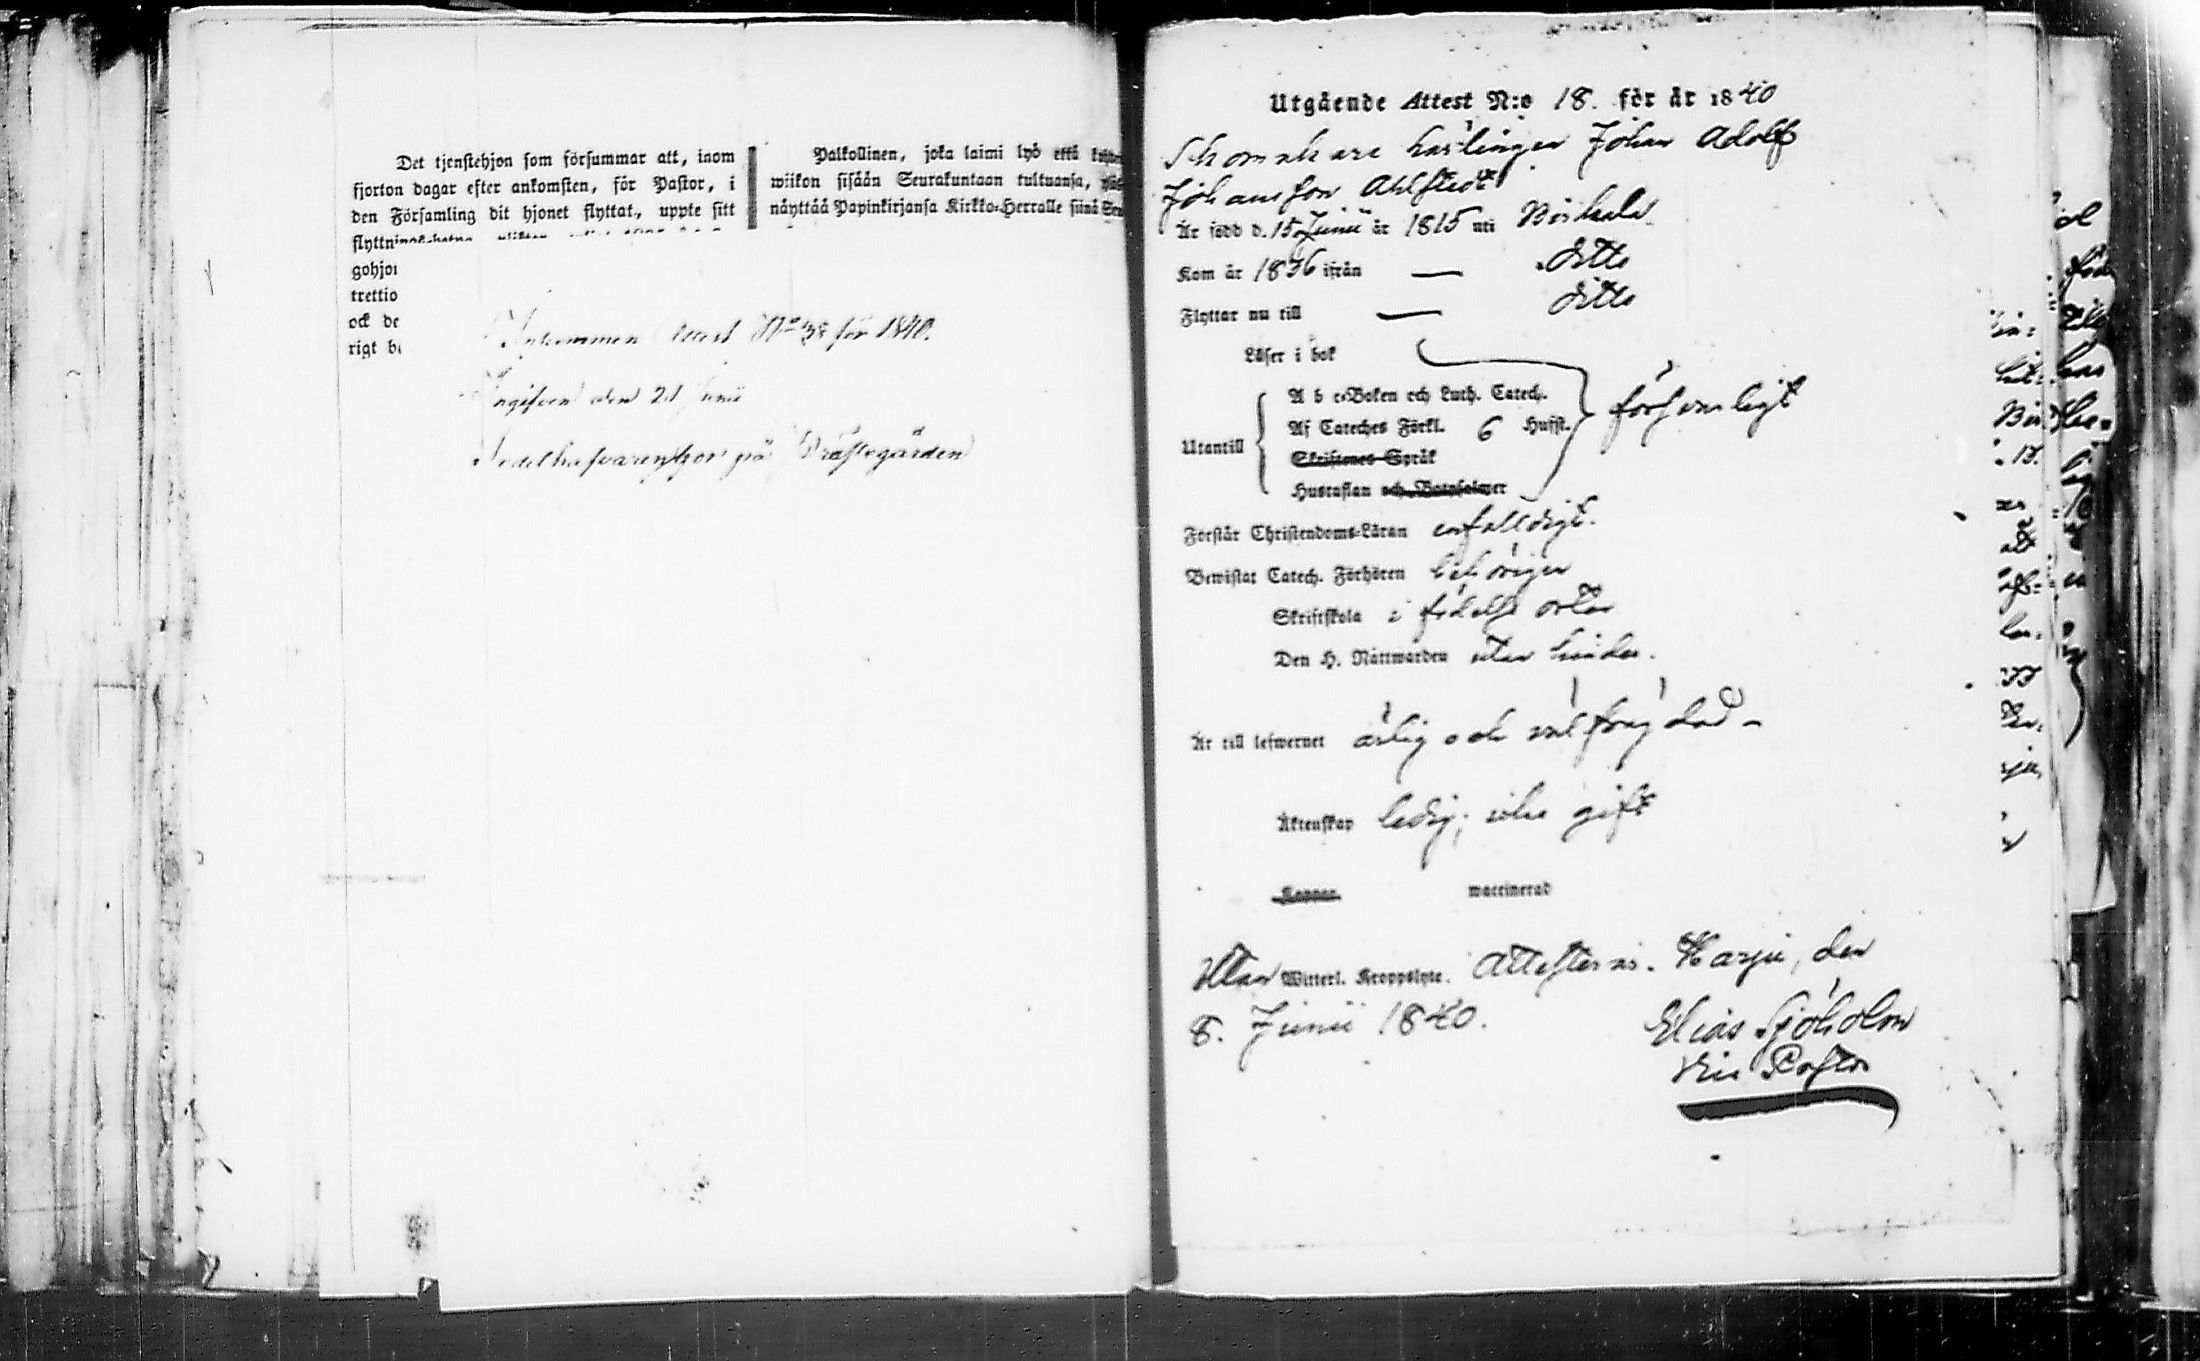 Det tjenstehjon som försummar att, inom
fjorton dagar efter ankomsten, för Pastor, i
den Församling dit hjonet flyttat, uppte sitt
gohjon
trettio
ock de
rigt b
Palkollinen, joka laimi lyö että
wiikon sisään Seurakuntaan tultuansa,
näyttää Papinkirjansa Kirkko-Herralle siinä
Inkommen Attest No 38 för 1840.
Ingifven den 21 Junii
Sedelhafvaren bor på Prästegården
Utgående Attest N:o 18. för år 1840
Skomakare Lärlingen Johan Adolf
Johansson Ahlstedt
Är född d. 15 Junii år 1815 uti Birkala
Kom år 1836 ifrån — ditto
Flyttar nu till — ditto
Läser i bok
A b c-Boken och Luth. Catech.
Utantill Af Cateches Förkl. 6 Hufst. försvarligt
Skriftenes Språk
Hustaflan och Botpsalmer
Förstår Christendoms-Läran enfalldigt.
Bewistat Catech. Förhören behörigen
Skriftskola i födelse orten
Den H. Nattwarden utan hinder.
Är till lefwernet ärlig och välfrejdad -
Äktenskap ledig; icke gift
Koppor waccinerad
Utan Witterl. Kroppslyte. Attesteras. Harju, den
8. Junii 1840. Elias Sjöholm
Vice Pastor